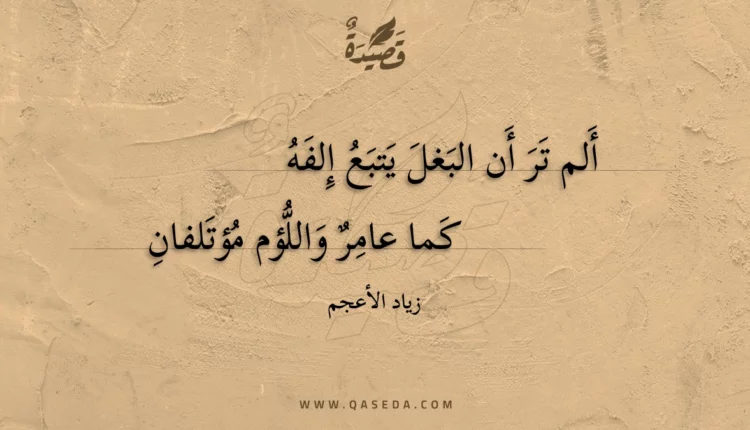 قَصِيْدَةٌ
أَلم تَرَ أَن البَغلَ يَتبَعُ إِلفَهُ
كَما عامِرٌ وَاللُّؤم مُؤتَلفانِ
زياد الأعجم
WWW.QASEDA.COM